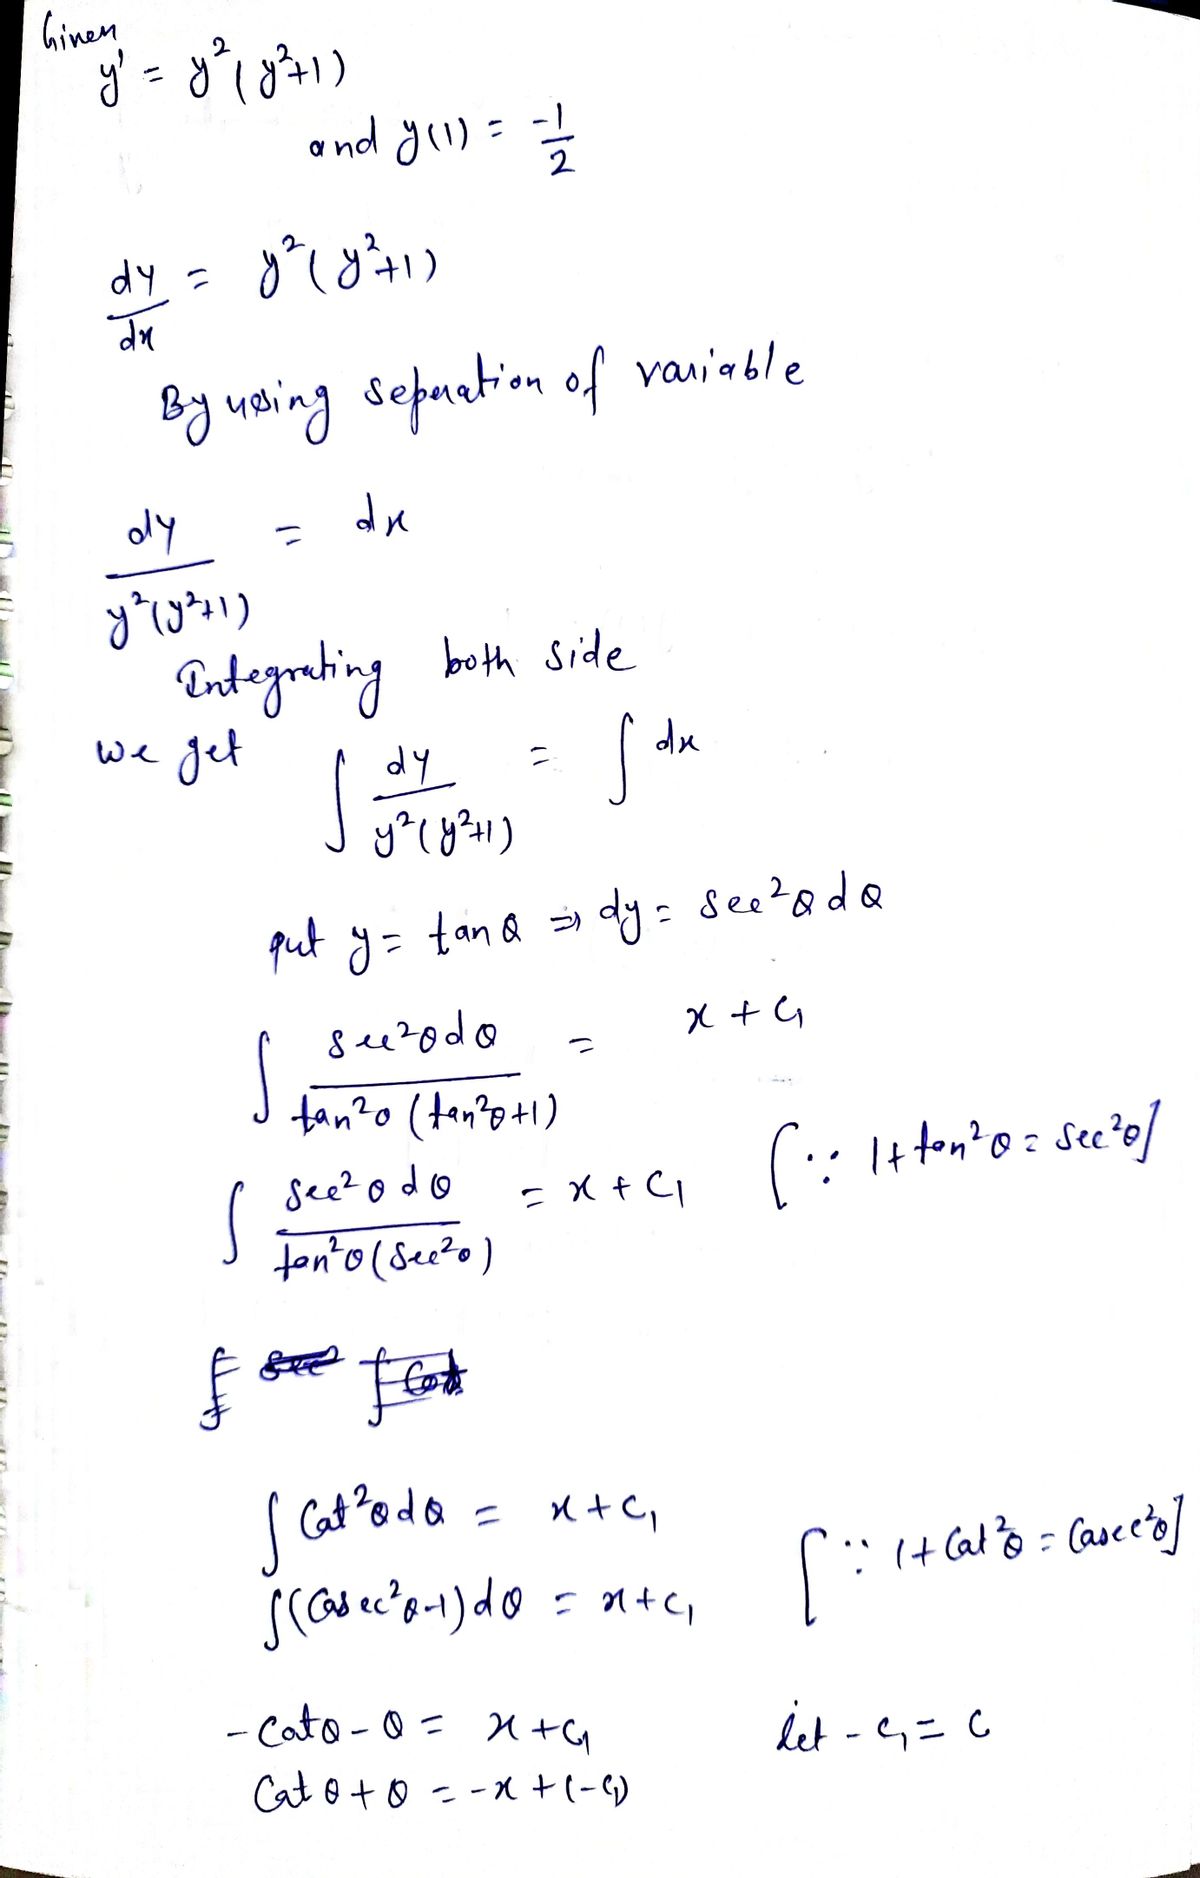 Given
y' = y²(y²+1)
and y(1) = -1/2
dy/dx = y²(y²+1)
By using seperation of variable
dy/y²(y²+1) = dx
Integrating both side
we get ∫ dy/y²(y²+1) = ∫ dx
put y = tan θ ⇒ dy = sec²θ dθ
∫ sec²θ dθ / tan²θ (tan²θ+1) = x + C₁
∫ sec²θ dθ / tan²θ (sec²θ) = x + C₁ [∵ 1+tan²θ = sec²θ]
∫ Cot²θ dθ = x + C₁
∫(Cosec²θ-1) dθ = x + C₁ [∵ 1+Cot²θ = Cosec²θ]
- Cotθ - θ = x + C₁ let - C₁ = C
Cot θ + θ = -x + (-C₁)